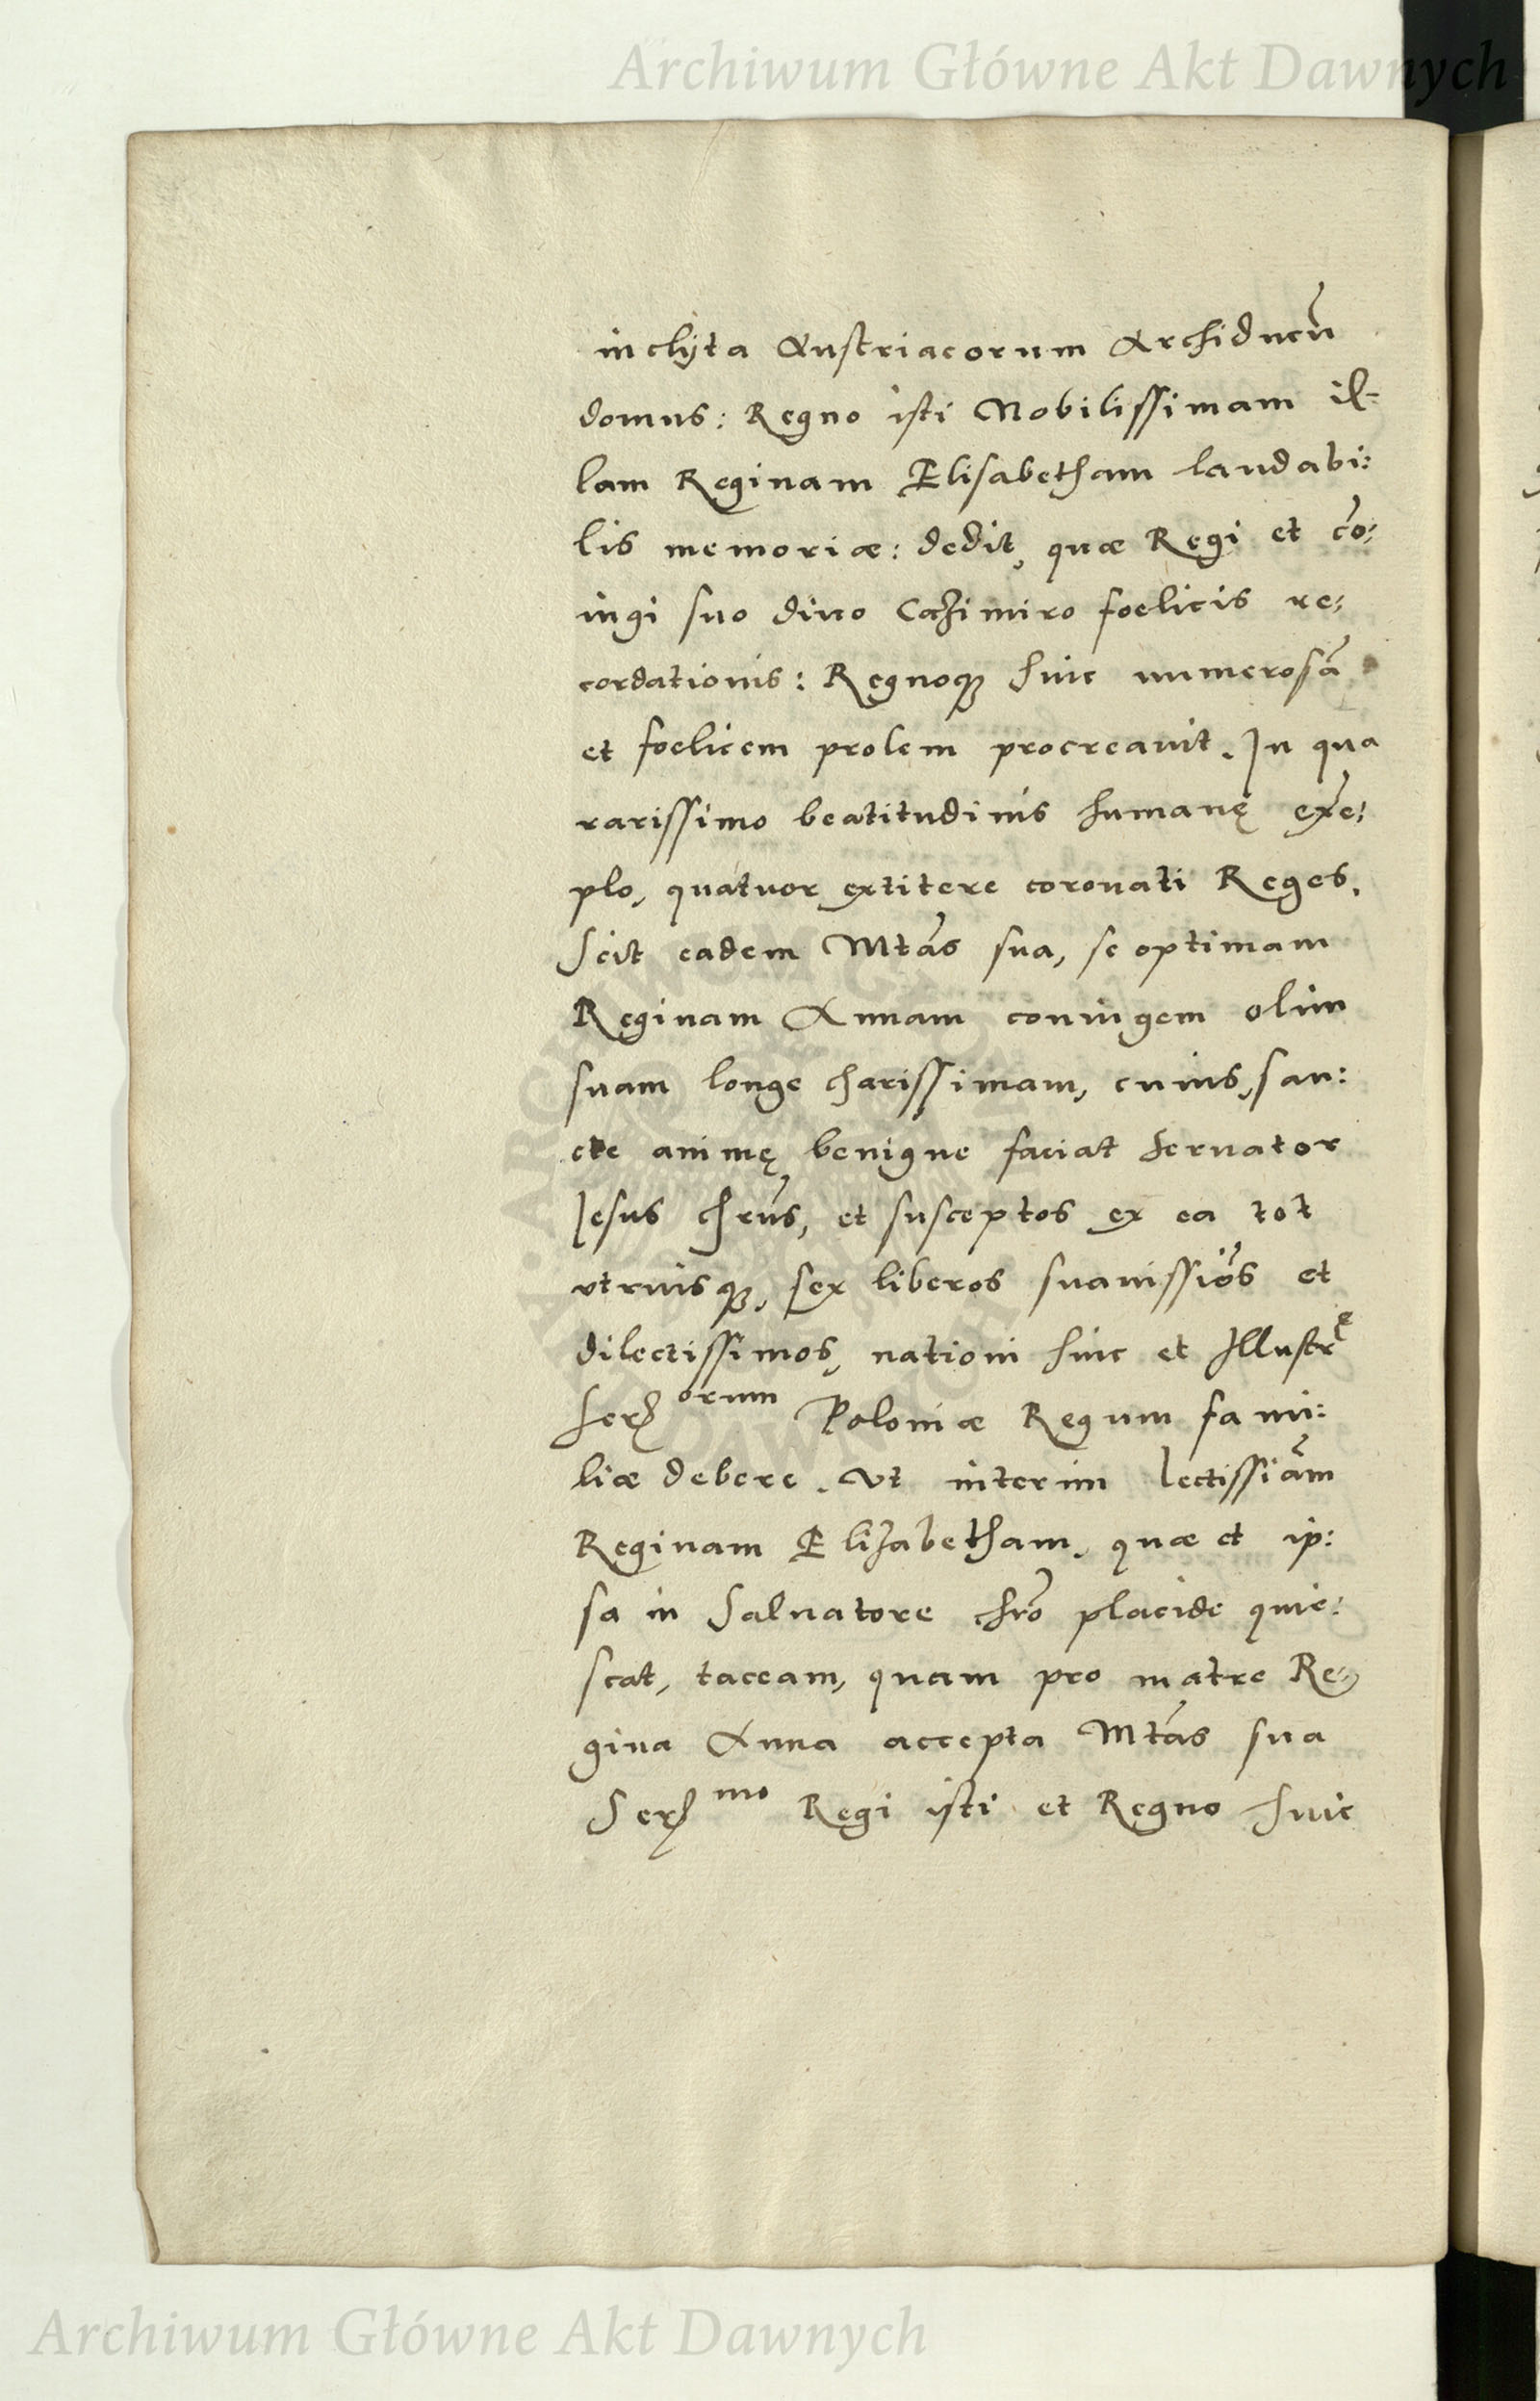 Archiwum Główne Akt Dawnych
inclyta Austriacorum Archiducũ
domus: Regno isti Nobilissimam il-
lam Reginam Elisabetham laudabi:
lis memoriæ: dedit, quæ Regi et cõ:
iugi suo diuo Cazimiro foelicis re:
cordationis: Regnoq; huic numerosã
et foelicem prolem procreauit. In qua
rarissimo beatitudinis humanę exẽ:
plo, quatuor extitere coronati Reges.
Scit eadem Mtas sua, se optimam
Reginam Annam coniugem olim
suam longe charissimam, cuius, san:
cte animę benigne faciat seruator
Jesus chrus, et susceptos ex ea tot
vtriusq;, sex liberos suauissios et
dilectissimos, nationi huic et Illustrę
Ser orum Poloniæ Regum fami:
liæ debere. Vt interim lectissiam
Reginam Elizabetham, quæ et ip:
sa in Saluatore chro placide quie:
scat, taceam, quam pro matre Re:
gina Anna accepta Mtas sua
Ser mo Regi isti et Regno huic
Archiwum Główne Akt Dawnych